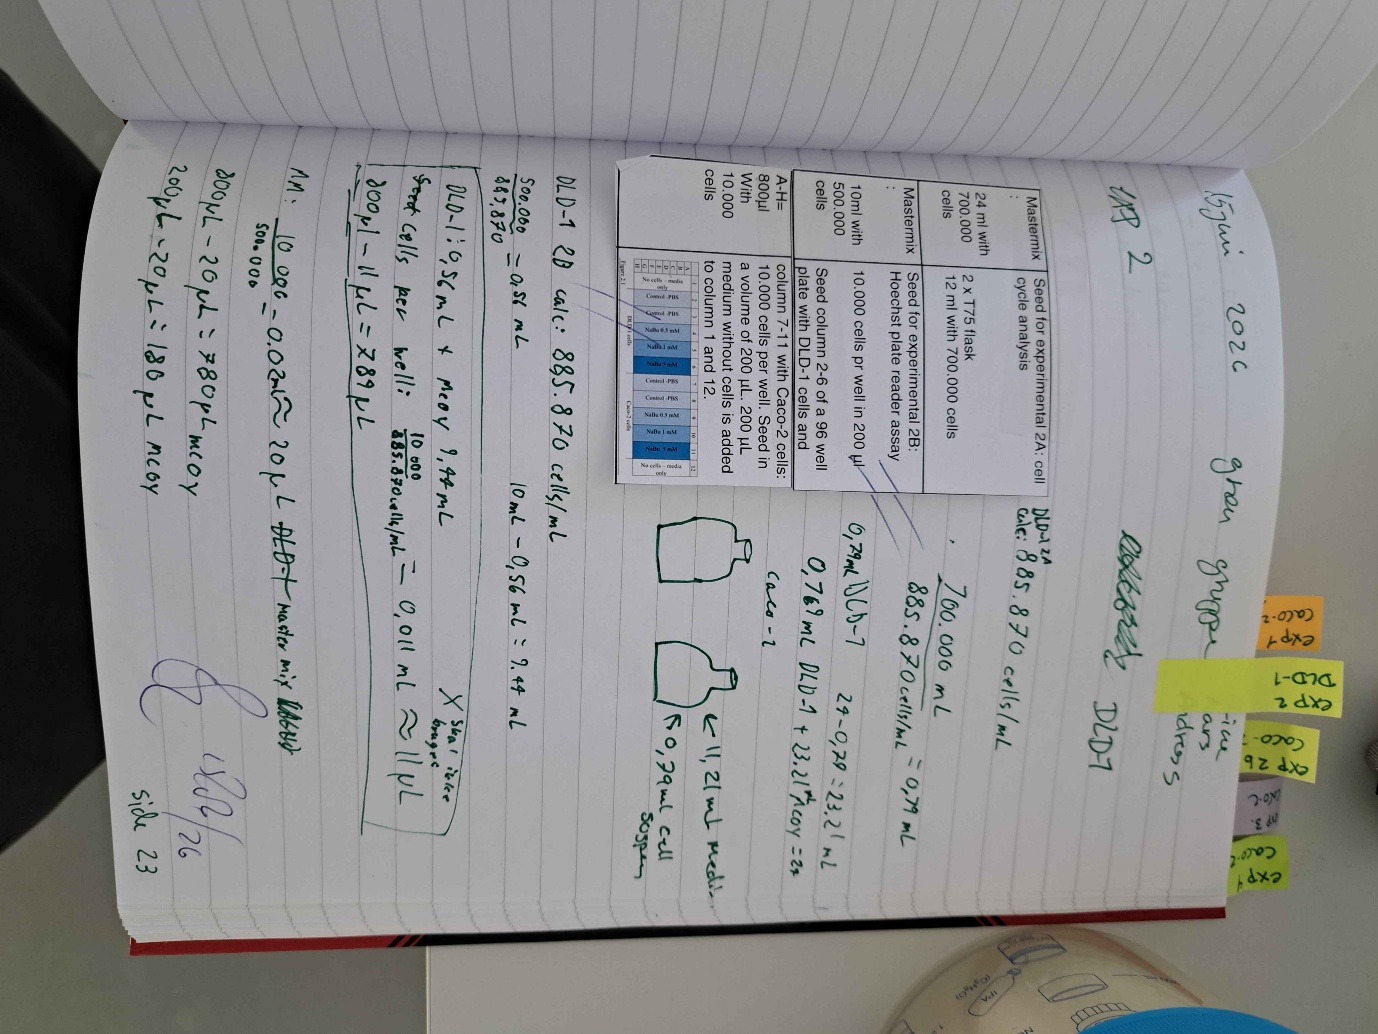 15 juni 2026 grøn gruppe
EXP 2 DLD1
Mastermix
:
Seed for experimental 2A: cell
cycle analysis
24 ml with
700.000
cells
2 x T75 flask
12 ml with 700.000 cells
Mastermix
:
Seed for experimental 2B:
Hoechst plate reader assay
10ml with
500.000
cells
10.000 cells pr well in 200 µl
Seed column 2-6 of a 96 well
plate with DLD-1 cells and
A-H=
800µl
With
10.000
cells
column 7-11 with Caco-2 cells:
10.000 cells per well. Seed in
a volume of 200 µL. 200 µL
medium without cells is added
to column 1 and 12.
No cells - media
only
Control -PBS
Control -PBS
NaBu 0.3 mM
NaBu 1 mM
NaBu 3 mM
Control -PBS
Control -PBS
NaBu 0.3 mM
NaBu 1 mM
NaBu 3 mM
No cells - media
only
DLD-1 cells
Caco-2 cells
Figure 2.1
DLD-1 2A
calc: 885.870 cells/mL
700.000 mL
885.870 cells/mL = 0,79 mL
0,79mL DLD-1 24-0,79 = 23.21 mL
0,769 mL DLD-1 + 23.21 mL Mcoy = 24
caco-2
← 11,21 ml medi
↖ 0,79mL cell
suspen
DLD-1 2B calc: 885.870 cells/mL
500.000
885.870 = 0,56 mL 10 mL - 0,56 mL = 9.44 mL
DLD-1: 0,56mL + Mcoy 9,44mL X skal ikke
bruges
Seed cells per well: 10 000
885.870cells/mL = 0,011 mL ≈ 11 µL
800µl - 11µL = 789 µL
MM: 10 000
500.000 = 0.02mL ≈ 20 µL DLD-1 master mix
800µL - 20µL = 780µL mcoy
200µL - 20µL = 180 µL mcoy
side 23
exp 1
caco-2
exp 2
DLD-1
exp 2b
caco-
exp 3.
caco-2
exp 4
caco-2